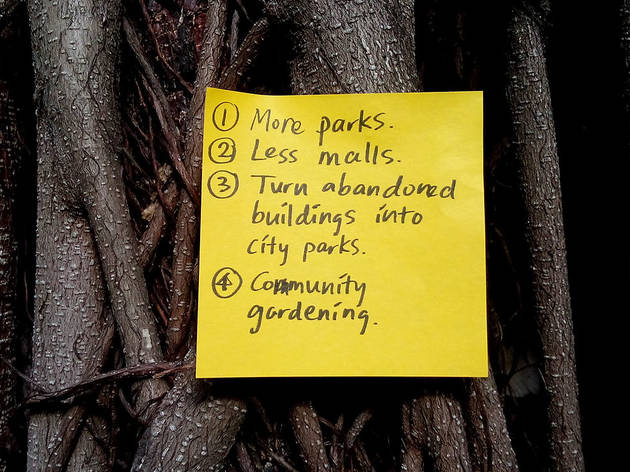 ① More parks.
② Less malls.
③ Turn abandoned
buildings into
city parks.
④ Community
gardening.